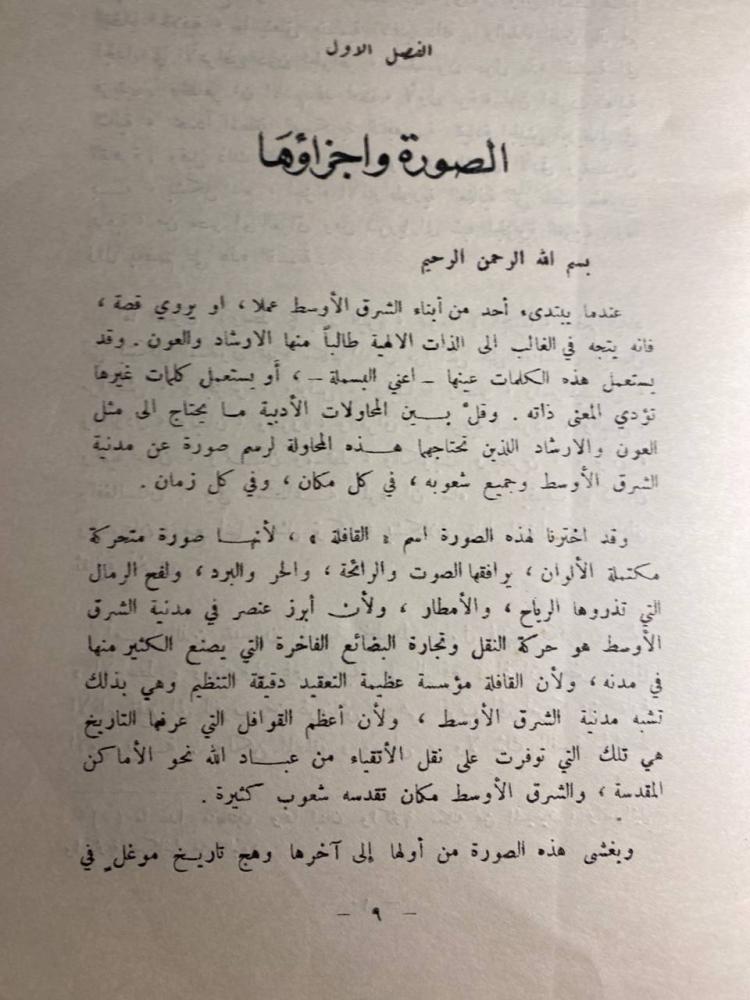 الفصل الاول
الصورة واجزاؤها
بسم الله الرحمن الرحيم
عندما يبتدىء أحد من أبناء الشرق الأوسط عملا ، او يروي قصة ،
فانه يتجه في الغالب الى الذات الالهية طالباً منها الارشاد والعون . وقد
يستعمل هذه الكلمات عينها _ اعني البسملة _ ، أو يستعمل كلمات غيرها
تؤدي المعنى ذاته . وقلّ بين المحاولات الأدبية ما يحتاج الى مثل
العون والارشاد اللذين تحتاجهما هذه المحاولة لرسم صورة عن مدنية
الشرق الأوسط وجميع شعوبه ، في كل مكان ، وفي كل زمان .
وقد اخترنا لهذه الصورة اسم « القافلة » ، لأنها صورة متحركة
مكتملة الألوان ، يرافقها الصوت والرائحة ، والحر والبرد ، ولفح الرمال
التي تذروها الرياح ، والأمطار ، ولأن أبرز عنصر في مدنية الشرق
الأوسط هو حركة النقل وتجارة البضائع الفاخرة التي يصنع الكثير منها
في مدنه ، ولأن القافلة مؤسسة عظيمة التعقيد دقيقة التنظيم وهي بذلك
تشبه مدنية الشرق الأوسط ، ولأن أعظم القوافل التي عرفها التاريخ
هي تلك التي توفرت على نقل الأتقياء من عباد الله نحو الأماكن
المقدسة ، والشرق الأوسط مكان تقدسه شعوب كثيرة .
ويغشى هذه الصورة من أولها إلى آخرها وهج تاريخ موغلٍ في
– ٩ –